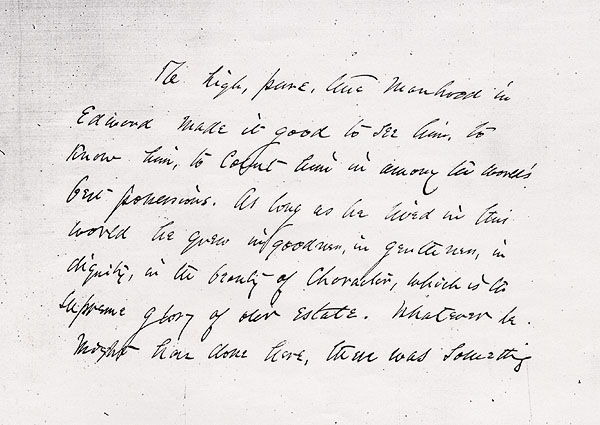 The high, pure, true Manhood in
Edward made it good to see him, to
Know him, to Count him in among the world's
best possessions. As long as he lived in this
world he grew in goodness, in gentleness, in
dignity, in the beauty of Character, which is the
Supreme glory of our Estate. Whatever he
Might have done here, there was Something